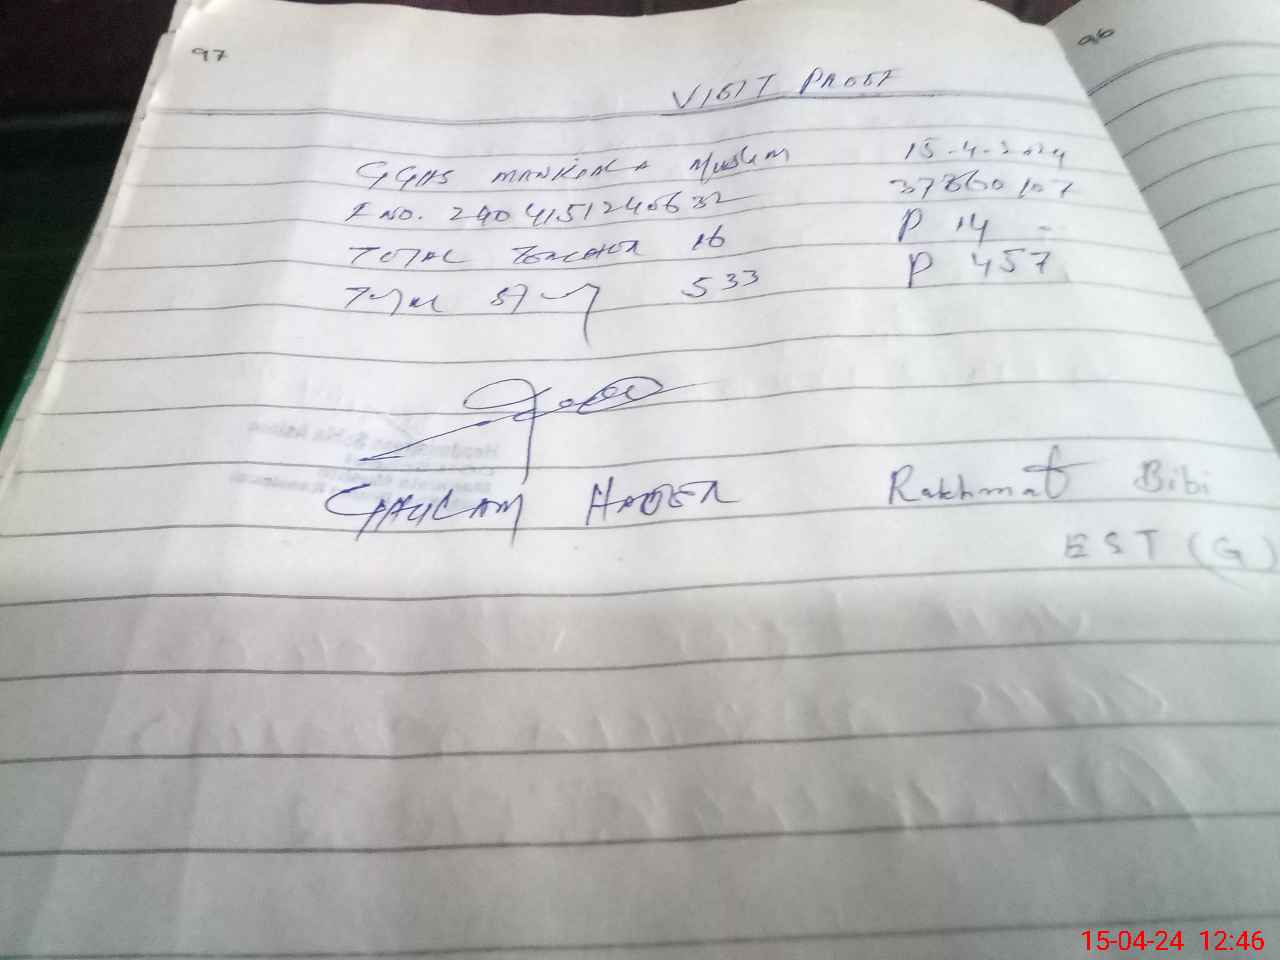 97
96
VISIT PROOF
GGHS MANKIALA Muslim 15-4-2024
I NO. 2404151240632 37360107
TOTAL TEACHER 16 P 14
Total 533 P 457
GHULAM HADER Rakhmat Bibi
EST (G)
15-04-24 12:46